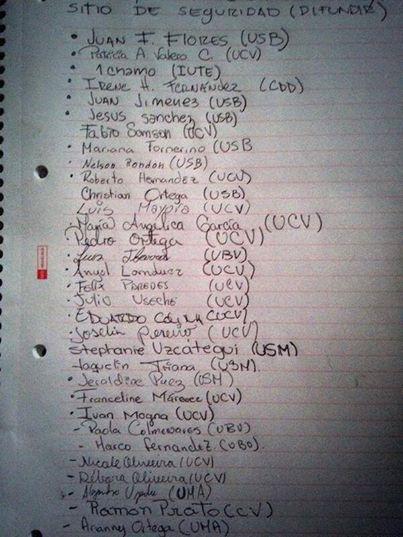 SITIO DE SEGURIDAD (DIFUNDIR)
• JUAN F. FLORES (USB)
• Patricia A. Valero C. (UCV)
• 1 chamo (IUTE)
• IRENE H. FERNÁNDEZ (CDD)
• JUAN Jimenez (USB)
• Jesus Sanchez (USB)
Fabio Samson (UCV)
• Mariana Fornerino (USB
• Nelson Rondon (USB)
• Roberto Hernandez (UCV)
Christian Ortega (USB)
Luis (UCV)
• Maria Angelica Garcia (UCV)
Pedro Ortega (UCV)
• (UBV)
• Angel (UCV)
• Felix PAREDES (UCV)
• Julio Useche (UCV)
• EDUARDO (UCV)
• Joselin (UCV)
Stephanie Uzcátegui (USM)
Triana (USM)
• (USM)
• Franceline (UCV)
• Ivan Mogna (UCV)
- Paola Colmenares (UBV)
- Marco Fernandez. (UBV).
- Nicole Oliveira (UCV)
- Débora Oliveira (UCV)
- Alejandro (UMA)
- Ramon (UCV)
- Aranny Ortega (UMA)